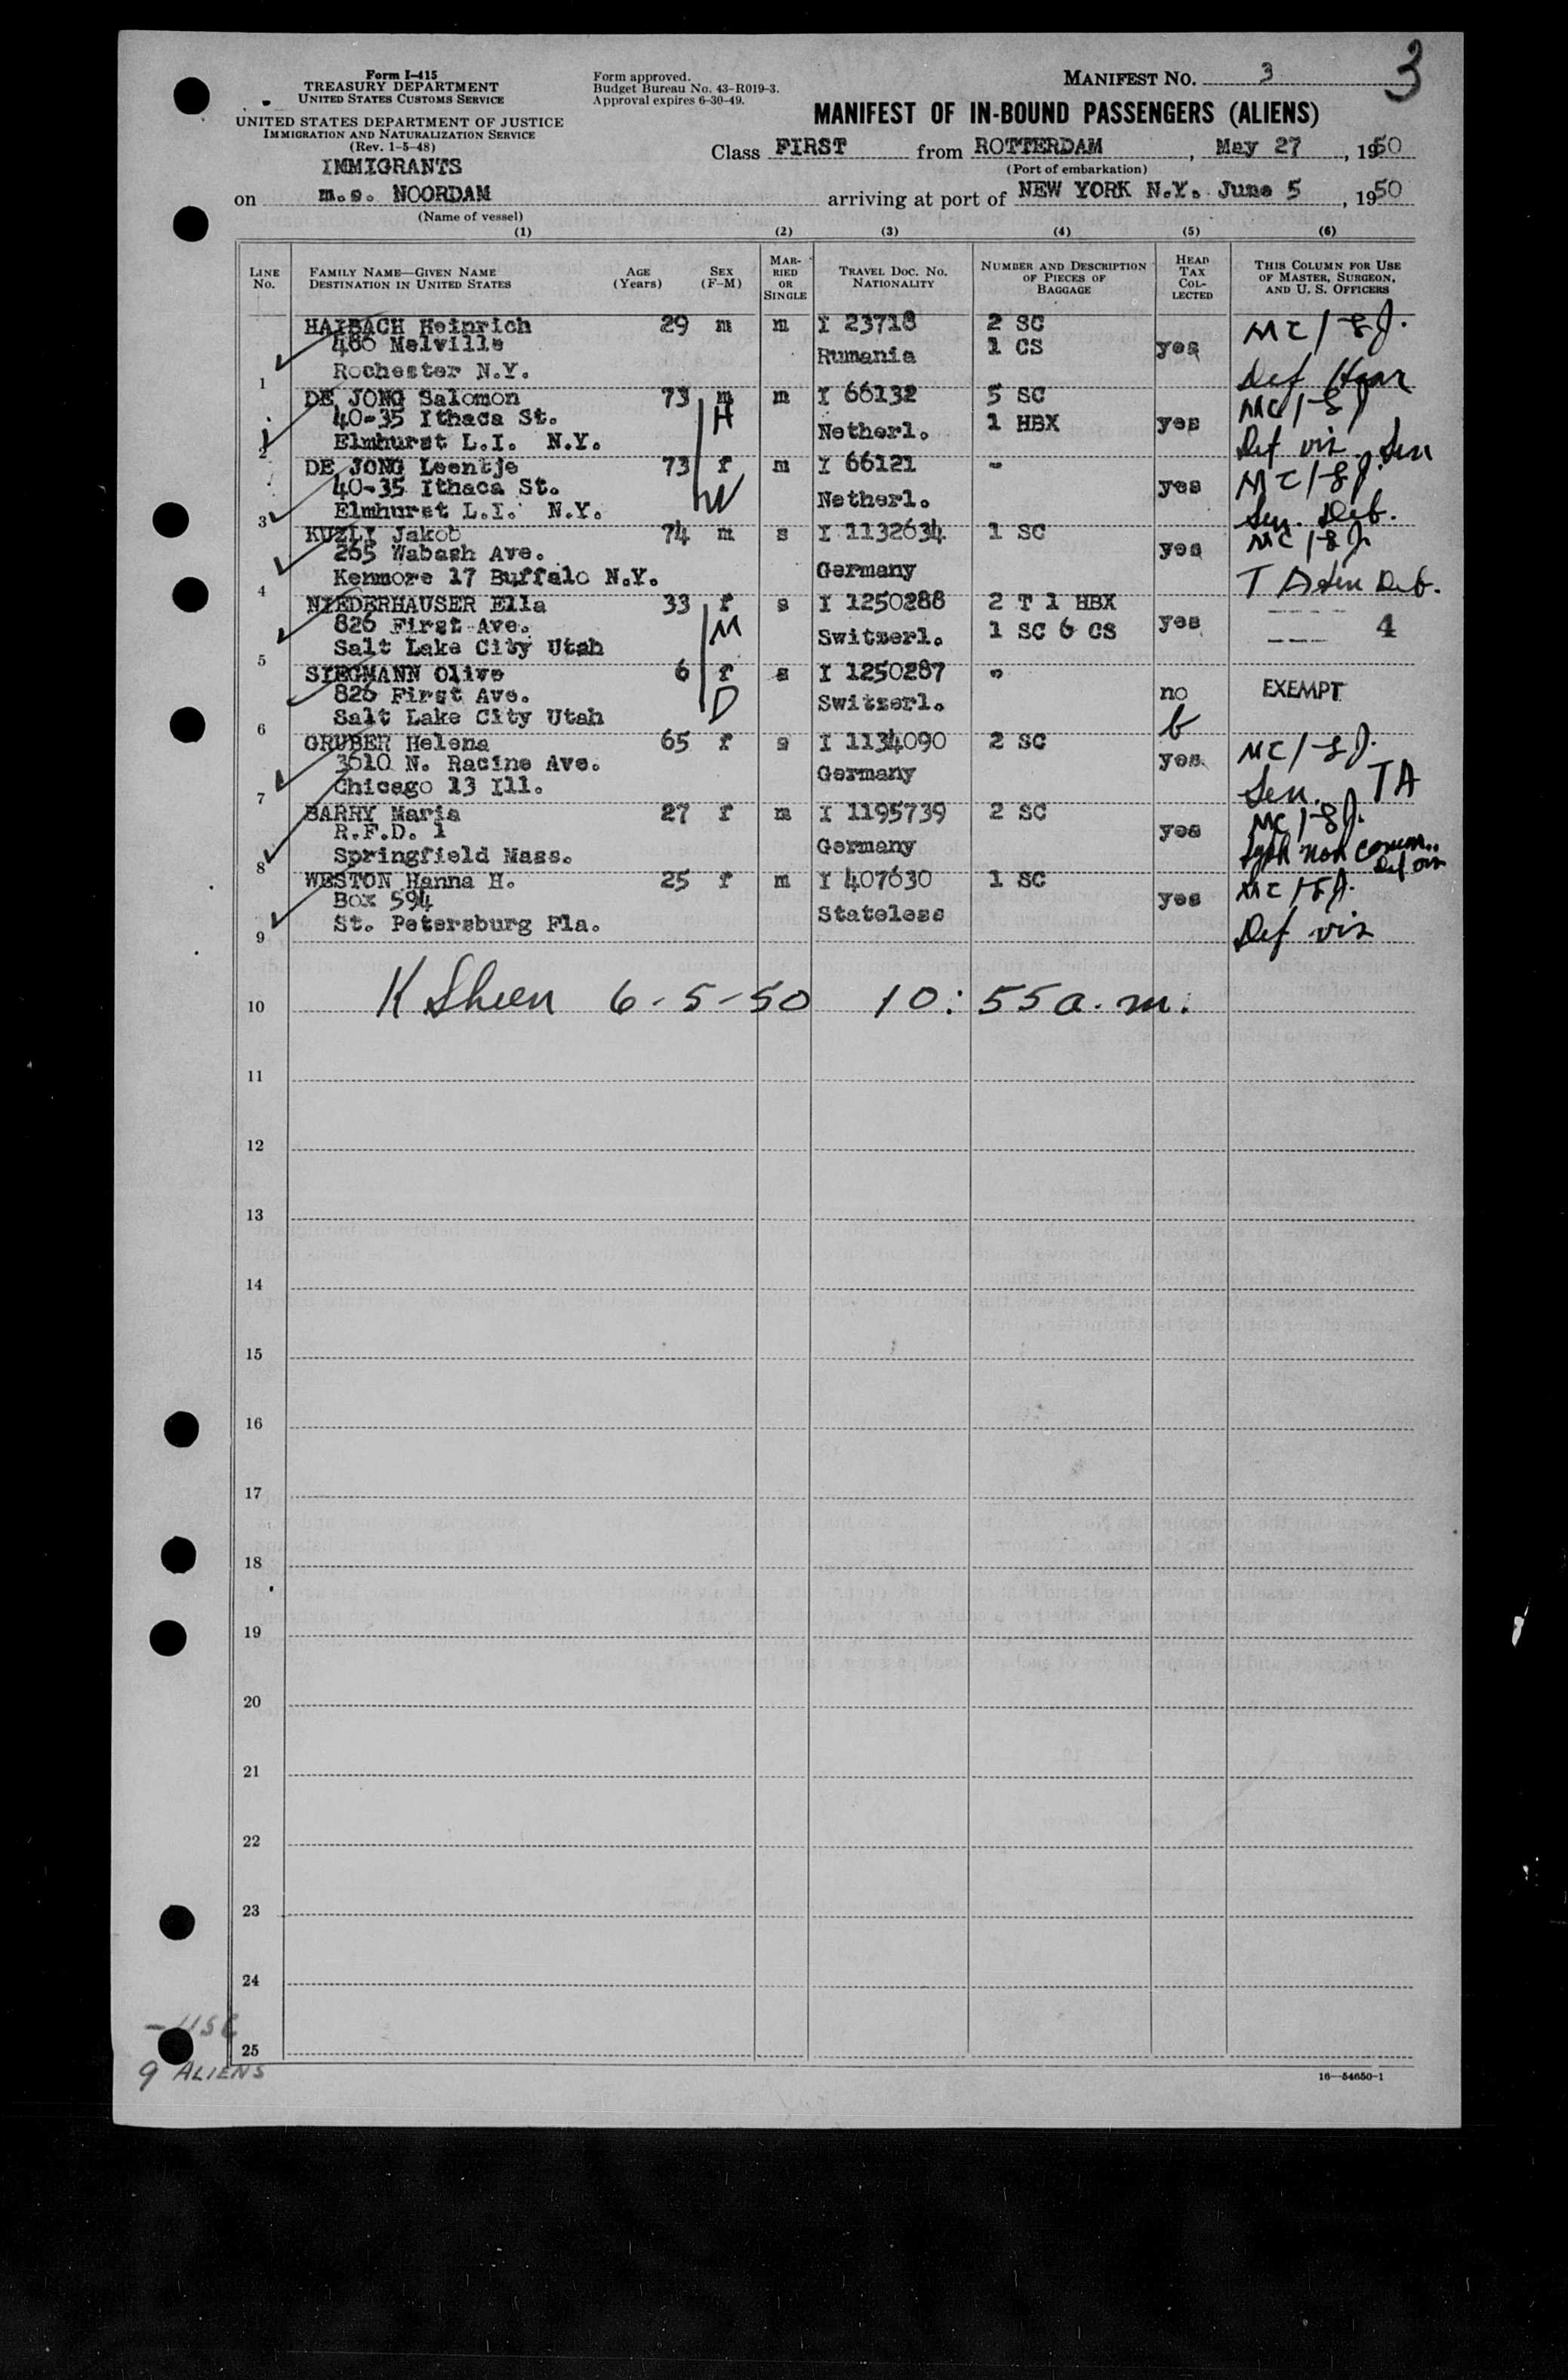 Form I-415
TREASURY DEPARTMENT
UNITED STATES CUSTOMS SERVICE
UNITED STATES DEPARTMENT OF JUSTICE
IMMIGRATION AND NATURALIZATION SERVICE
(Rev. 1-5-48)
Form approved.
Budget Bureau No. 43-R019-3.
Approval expires 6-30-49.
MANIFEST NO. 3
3
MANIFEST OF IN-BOUND PASSENGERS (ALIENS)
IMMIGRANTS
Class FIRST from ROTTERDAM, May 27, 1950
(Port of embarkation)
on m.s. NOORDAM arriving at port of NEW YORK N.Y. June 5, 1950
(Name of vessel)
(1) (2) (3) (4) (5) (6)
LINE NO.
FAMILY NAME—GIVEN NAME
DESTINATION IN UNITED STATES
AGE (Years)
SEX (F-M)
MARRIED OR SINGLE
TRAVEL DOC. NO.
NATIONALITY
NUMBER AND DESCRIPTION OF PIECES OF BAGGAGE
HEAD TAX COLLECTED
THIS COLUMN FOR USE OF MASTER, SURGEON, AND U. S. OFFICERS
HAIBACH Heinrich 29 m m I 23718 2 SC MC/
486 Melville Rumania 1 CS yes
1 Rochester N.Y. Def Hear
DE JONG Salomon 73 m m I 66132 5 SC MC/
40-35 Ithaca St. H Netherl. 1 HBX yes
2 Elmhurst L.I. N.Y. Def vis. Sen
DE JONG Leentje 73 f m I 66121 - MC/
40-35 Ithaca St. W Netherl. yes
3 Elmhurst L.I. N.Y. Sen. Deb.
KUZLI Jakob 74 m s I 1132634 1 SC MC/
265 Wabash Ave. Germany yes
4 Kenmore 17 Buffalo N.Y. T A Sen Deb.
NIEDERHAUSER Ella 33 f s I 1250288 2 T 1 HBX
826 First Ave. M Switzerl. 1 SC 6 CS yes 4
5 Salt Lake City Utah
SIEGMANN Olive 6 f s I 1250287 -
826 First Ave. D Switzerl. no EXEMPT
6 Salt Lake City Utah b
GRUBER Helena 65 f s I 1134090 2 SC MC/
3610 N. Racine Ave. Germany yes
7 Chicago 13 Ill. Sen. TA
BARRY Maria 27 f m I 1195739 2 SC MC/
R.F.D. 1 Germany yes
8 Springfield Mass. non Comm. Def vis
WESTON Hanna H. 25 f m I 407630 1 SC MC/
Box 594 Stateless yes
9 St. Petersburg Fla. Def vis
10 K Sheen 6-5-50 10:55 a.m.
11
12
13
14
15
16
17
18
19
20
21
22
23
24
25
- USC
9 ALIENS
16—54650-1